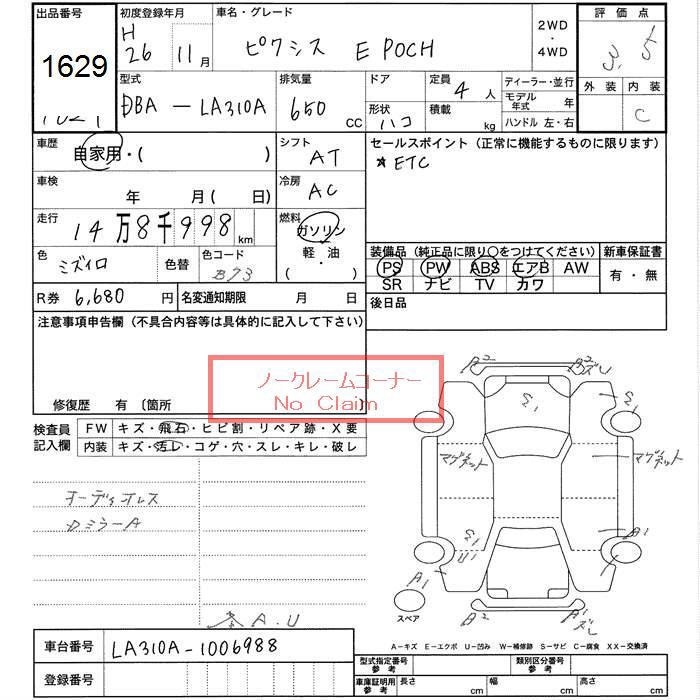 出品番号
1629
初度登録年月
H
26 11月
車名・グレード
ピクシス E POCH
2WD
・
4WD
評価点
3.5
外装 内装
C
型式
DBA - LA310A
排気量
650 CC
ドア
形状
ハコ
定員
4人
積載
kg
ディーラー・並行
モデル年式 年
ハンドル 左・右
車歴
自家用・( )
シフト
AT
セールスポイント (正常に機能するものに限ります)
*ETC
車検
年 月( 日)
冷房
AC
走行
14万8千998km
燃料
ガソリン
軽・油
・( )
色
ミズイロ
色替
色コード
B73
装備品 (純正品に限り○をつけてください)
PS PW ABS エアB AW
SR ナビ TV カワ
新車保証書
有・無
R券 6,680円
名変通知期限 月 日
後日品
注意事項申告欄 (不具合内容等は具体的に記入して下さい)
ノークレームコーナー
No Claim
修復歴 有 〔箇所 〕
検査員
記入欄
FW キズ・飛石・ヒビ割・リペア跡・X要
内装 キズ・汚レ・コゲ・穴・スレ・キレ・破レ
オーディオレス
カミラーA
A.U
A2
A2
ズレ
マグネット
マグネット
A1
A1
A2
A1
ズレ
スペア
A-キズ E-エクボ U-凹み W-補修跡 S-サビ C-腐食 XX-交換済
車台番号 LA310A-1006988
登録番号
型式指定番号
参考
類別区分番号
参考
車庫証明用
参考
長さ cm 幅 cm 高さ cm